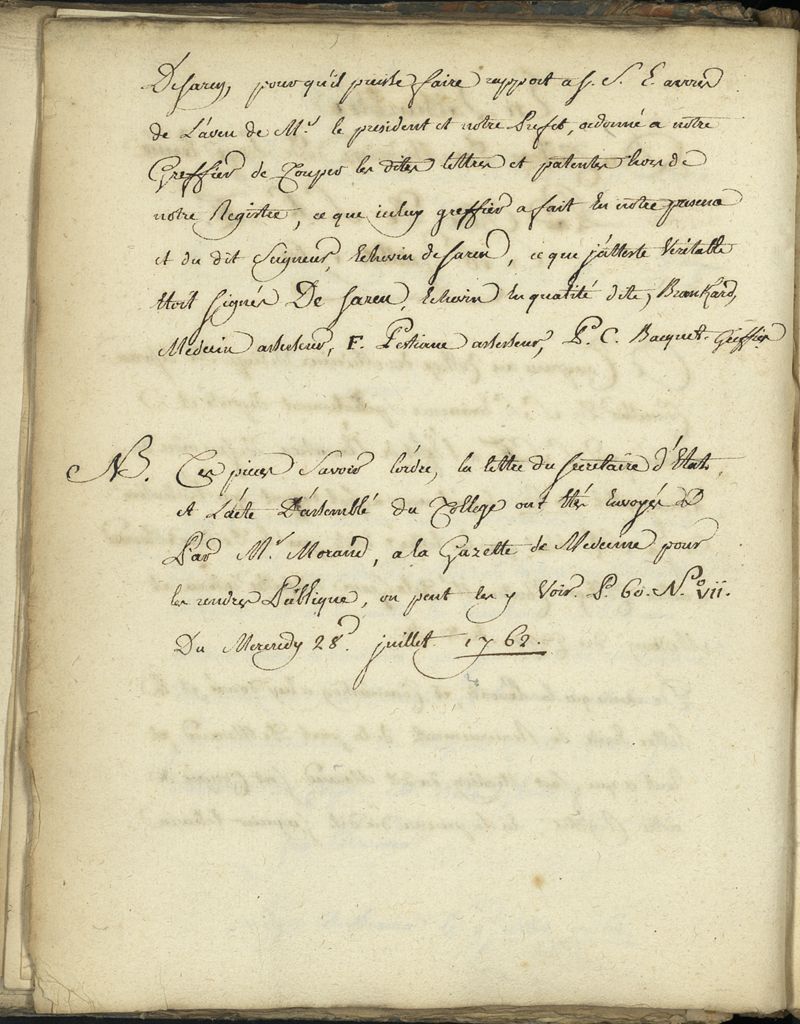 Desaren, pour qu'il puisse faire rapport a S. E. avons
de L'aveu de Mr. le president et notre Prefet, ordonné a notre
Greffier de Couper les dites lettres et patentes hors de
notre Registre, ce que iceluy greffier a fait En notre presence
et du dit Seigneur Echevin desaren, ce que j'atteste Veritable
Etoit signés De Saren, Echevin En qualité dite, Brankard,
Medecin assesseur, F. Pestiaux assesseur, P. C. Bacquet. Greffier
NB. Ces pieces Savoir l'ordre, la lettre du Secretaire d'Etat,
et L'acte D'assemblé du College ont Etés Envoyés
Par Mr. Morand, a la Gazette de Medecine pour
les rendres Publique, on peut les y Voir. P. 60. No. VII.
Du Mercredy 28. juillet. 1762.